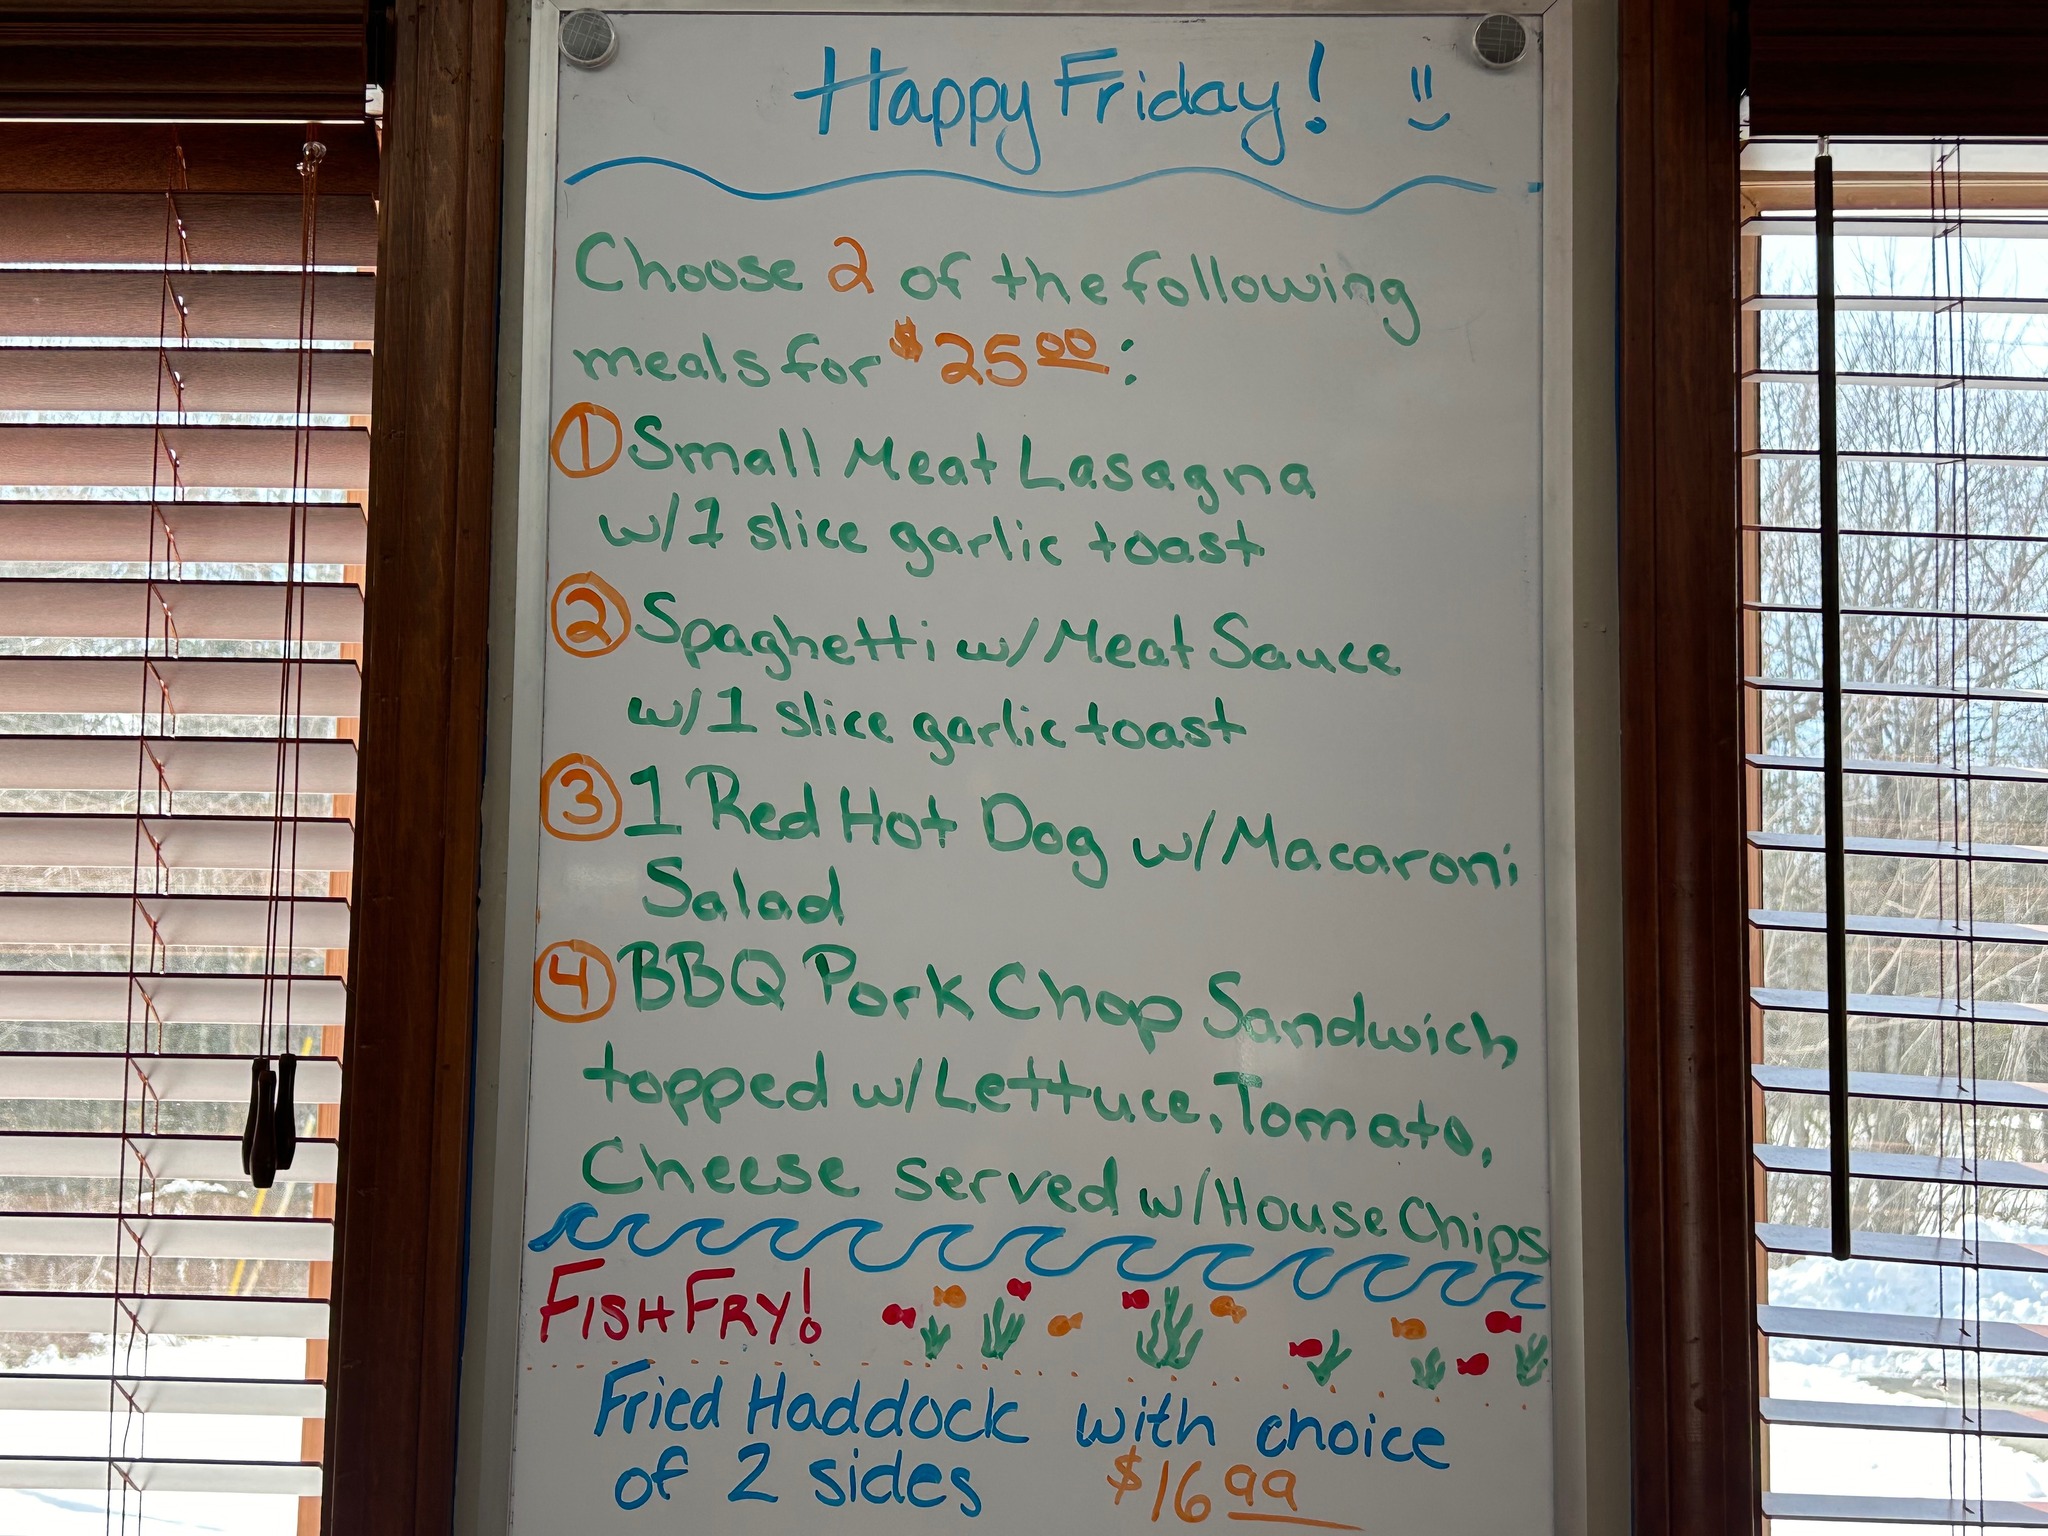 Happy Friday!
Choose 2 of the following
meals for $25.00:
1 Small Meat Lasagna
w/1 slice garlic toast
2 Spaghetti w/Meat Sauce
w/1 slice garlic toast
3 1 Red Hot Dog w/Macaroni
Salad
4 BBQ Pork Chop Sandwich
topped w/Lettuce, Tomato,
Cheese served w/House Chips
FISH FRY!
Fried Haddock with choice
of 2 sides $16.99